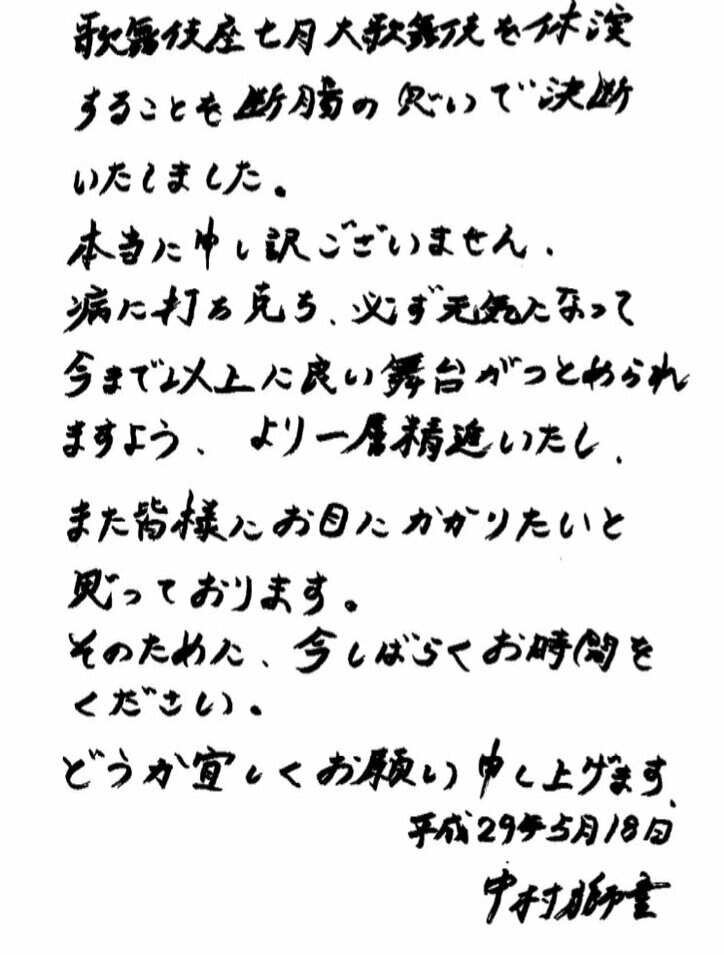 歌舞伎座七月大歌舞伎を休演
することを断腸の思いで決断
いたしました。
本当に申し訳ございません、
病に打ち克ち、必ず元気になって
今まで以上に良い舞台がつとめられ
ますよう、より一層精進いたし、
また皆様にお目にかかりたいと
思っております。
そのために、今しばらくお時間を
ください。
どうか宜しくお願い申し上げます、
平成29年5月18日
中村獅童